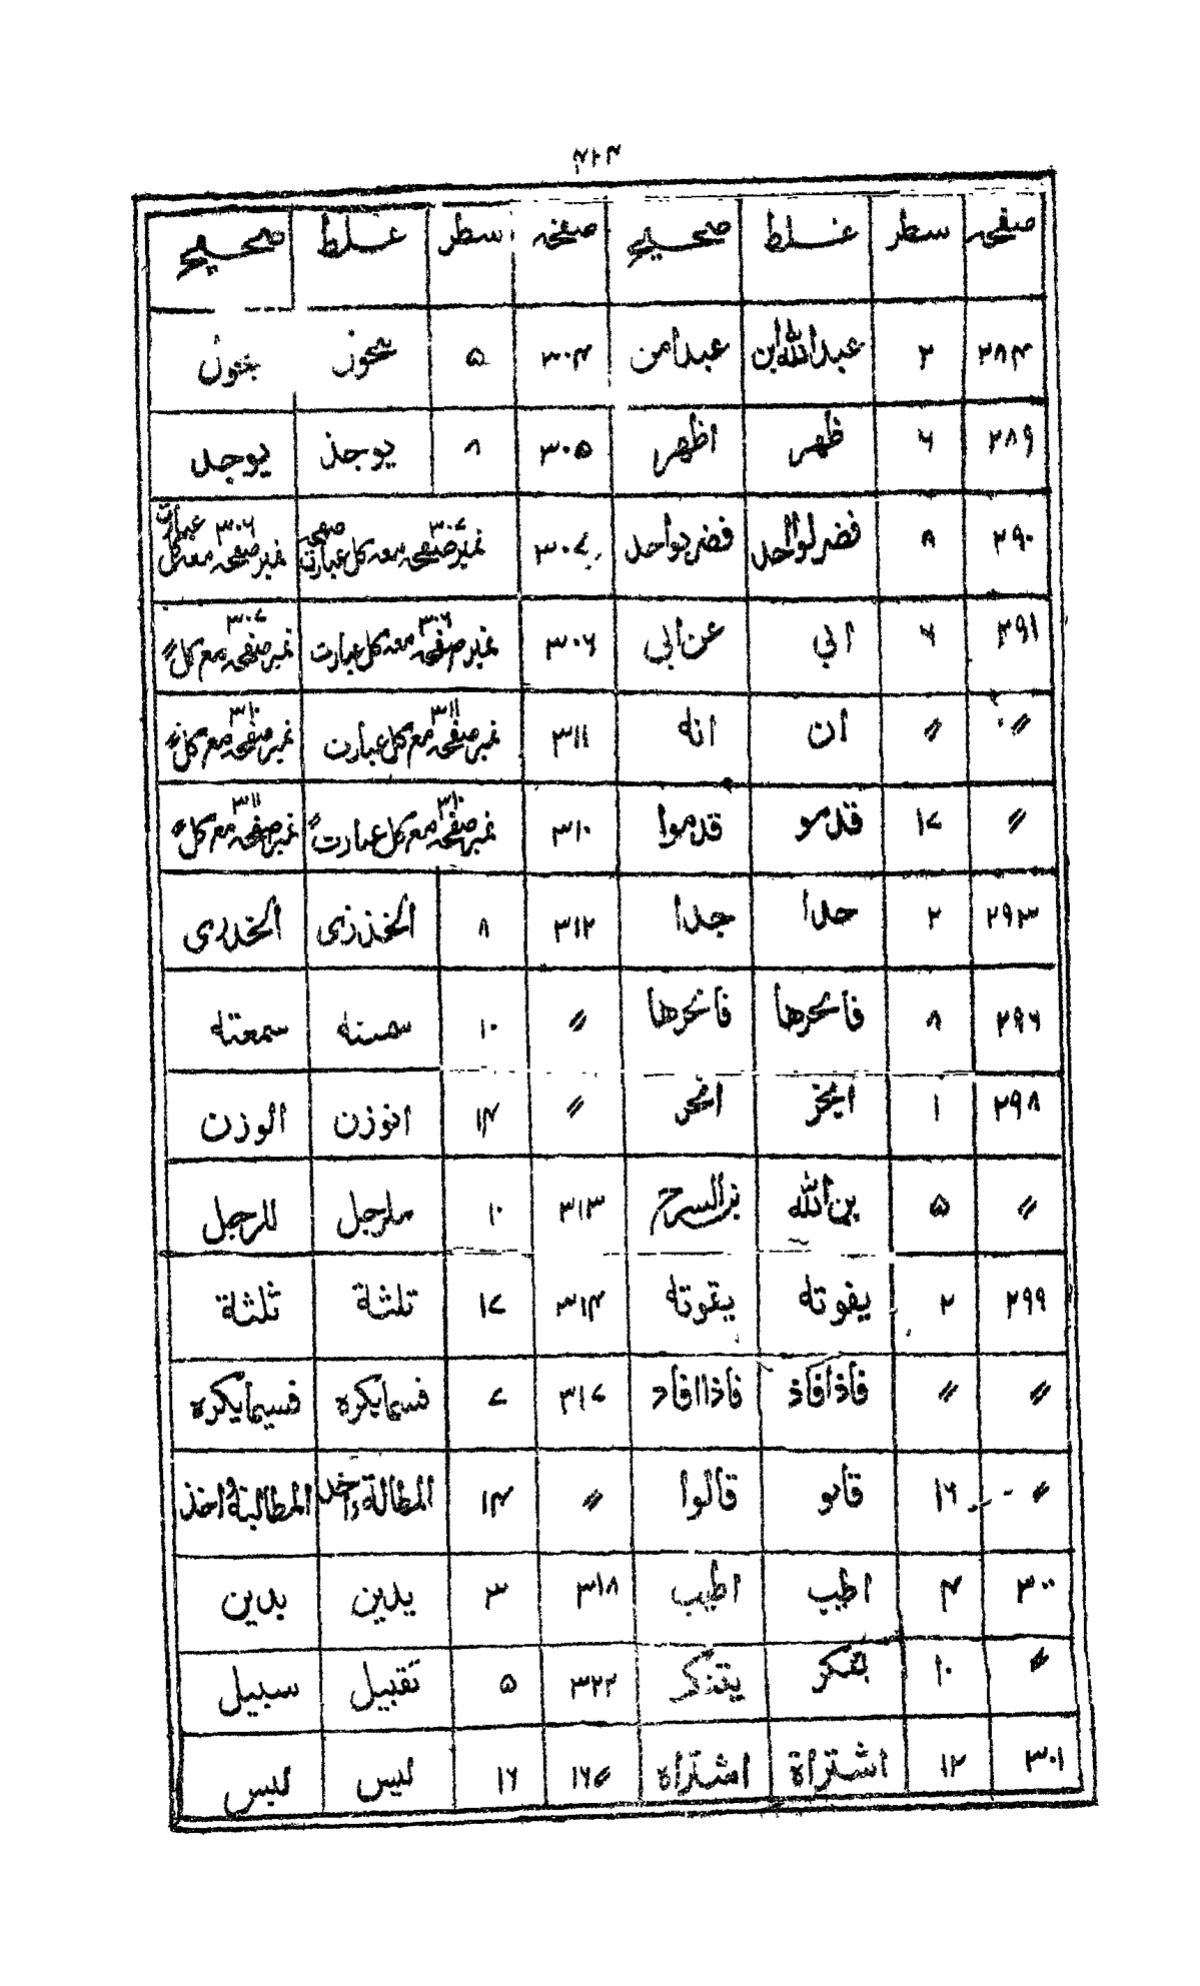 ۴۲۴
صفحہ سطر غلط صحیح صفحہ سطر غلط صحیح
۲۸۴ ۲ عبداللہ ابن عبدامن ۳۰۴ ۵
۲۸۹ ۶ ظہر اظہر ۳۰۵ ۸ یوجذ یوجد
۲۹۰ ۸ فضرلوالحد فضربواحد ۳۰۷ نمبر صفحہ ۳۰۷ معہ کل عبارت صفحہ نمبر صفحہ ۳۰۶ معہ کل عبارت
۲۹۱ ۶ ابی عن ابی ۳۰۶ نمبر صفحہ ۳۰۶ معہ کل عبارت نمبر صفحہ ۳۰۷ مع کل ״
״ ״ ان انہ ۳۱۱ نمبر صفحہ ۳۱۱ مع کل عبارت نمبر صفحہ ۳۱۰ مع کل ״
״ ۱۷ قدمو قدموا ۳۱۰ نمبر صفحہ ۳۱۰ مع کل عبارت ״ نمبر صفحہ ۳۱۱ مع کل ״
۲۹۳ ۲ حدا جدا ۳۱۲ ۸ الخذزی الخدری
۲۹۶ ۸ فانحرھا فانحرھا ״ ۱۰ سمعتہ
۲۹۸ ۱ انحر ״ ۱۴ انوزن الوزن
״ ۵ بن اللہ بن السرح ۳۱۳ ۱۰ ملرجل للرجل
۲۹۹ ۲ یفوتہ یقوتہ ۳۱۴ ۱۷ تلثة ثلثة
״ ״ فاذافاذ فاذاافاد ۳۱۷ ۷ فسمایکرہ فسیمایکرہ
״ ۱۶ قابو قالوا ״ ۱۴ المطالة واخد المطالبة واخذ
۳۰۰ ۴ اطیب اطیب ۳۱۸ ۳ یدین بدین
״ ۱۰ بفکر یتذکر ۳۲۲ ۵ تقبیل سبیل
۳۰۱ ۱۲ اشتراة اشتراہ ״ ۱۶ ۱۶ لیس لبس